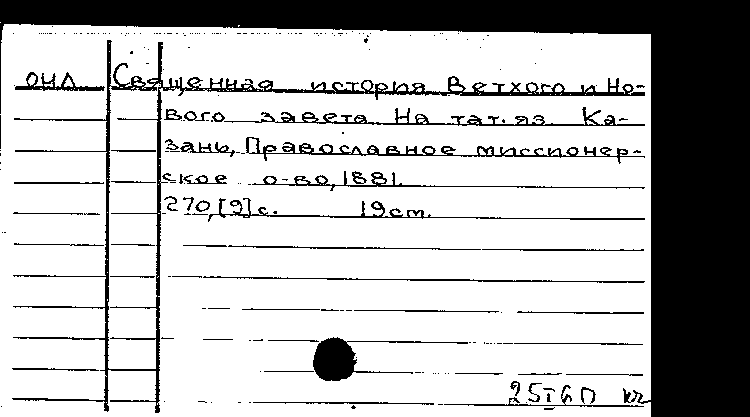 ОНЛ Священная история Ветхого и Но-
вого завета На тат. яз. Ка-
зань, Православное миссионер-
ское о-во, 1881.
270, [9] с. 19 cm.